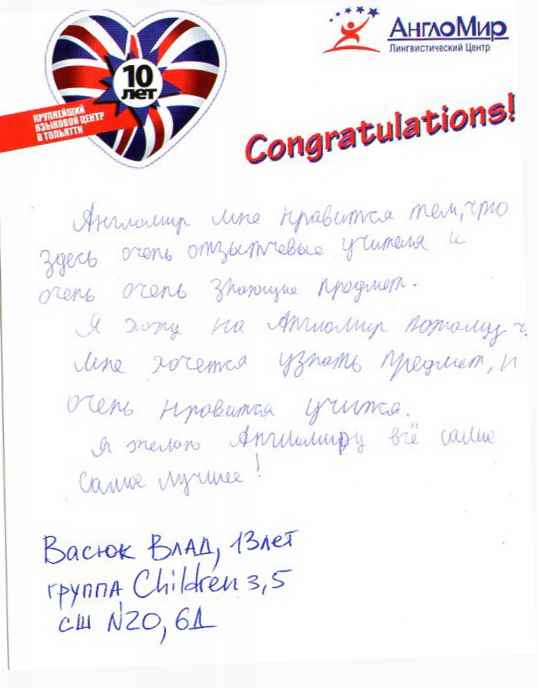 10
лет
КРУПНЕЙШИЙ
ЯЗЫКОВОЙ ЦЕНТР
В ТОЛЬЯТТИ
АнглоМир
Лингвистический Центр
Congratulations!
Англомир мне нравится тем, что
здесь очень отзытчевые учителя и
очень очень знающие предмет.
Я хожу на Англомир потому ч
мне хочется узнать предмет, и
очень нравится учится.
Я желаю Англомиру всё самое
самое лучшее!
Васюк Влад, 13 лет
группа Children 3,5
сш N20, 6Д